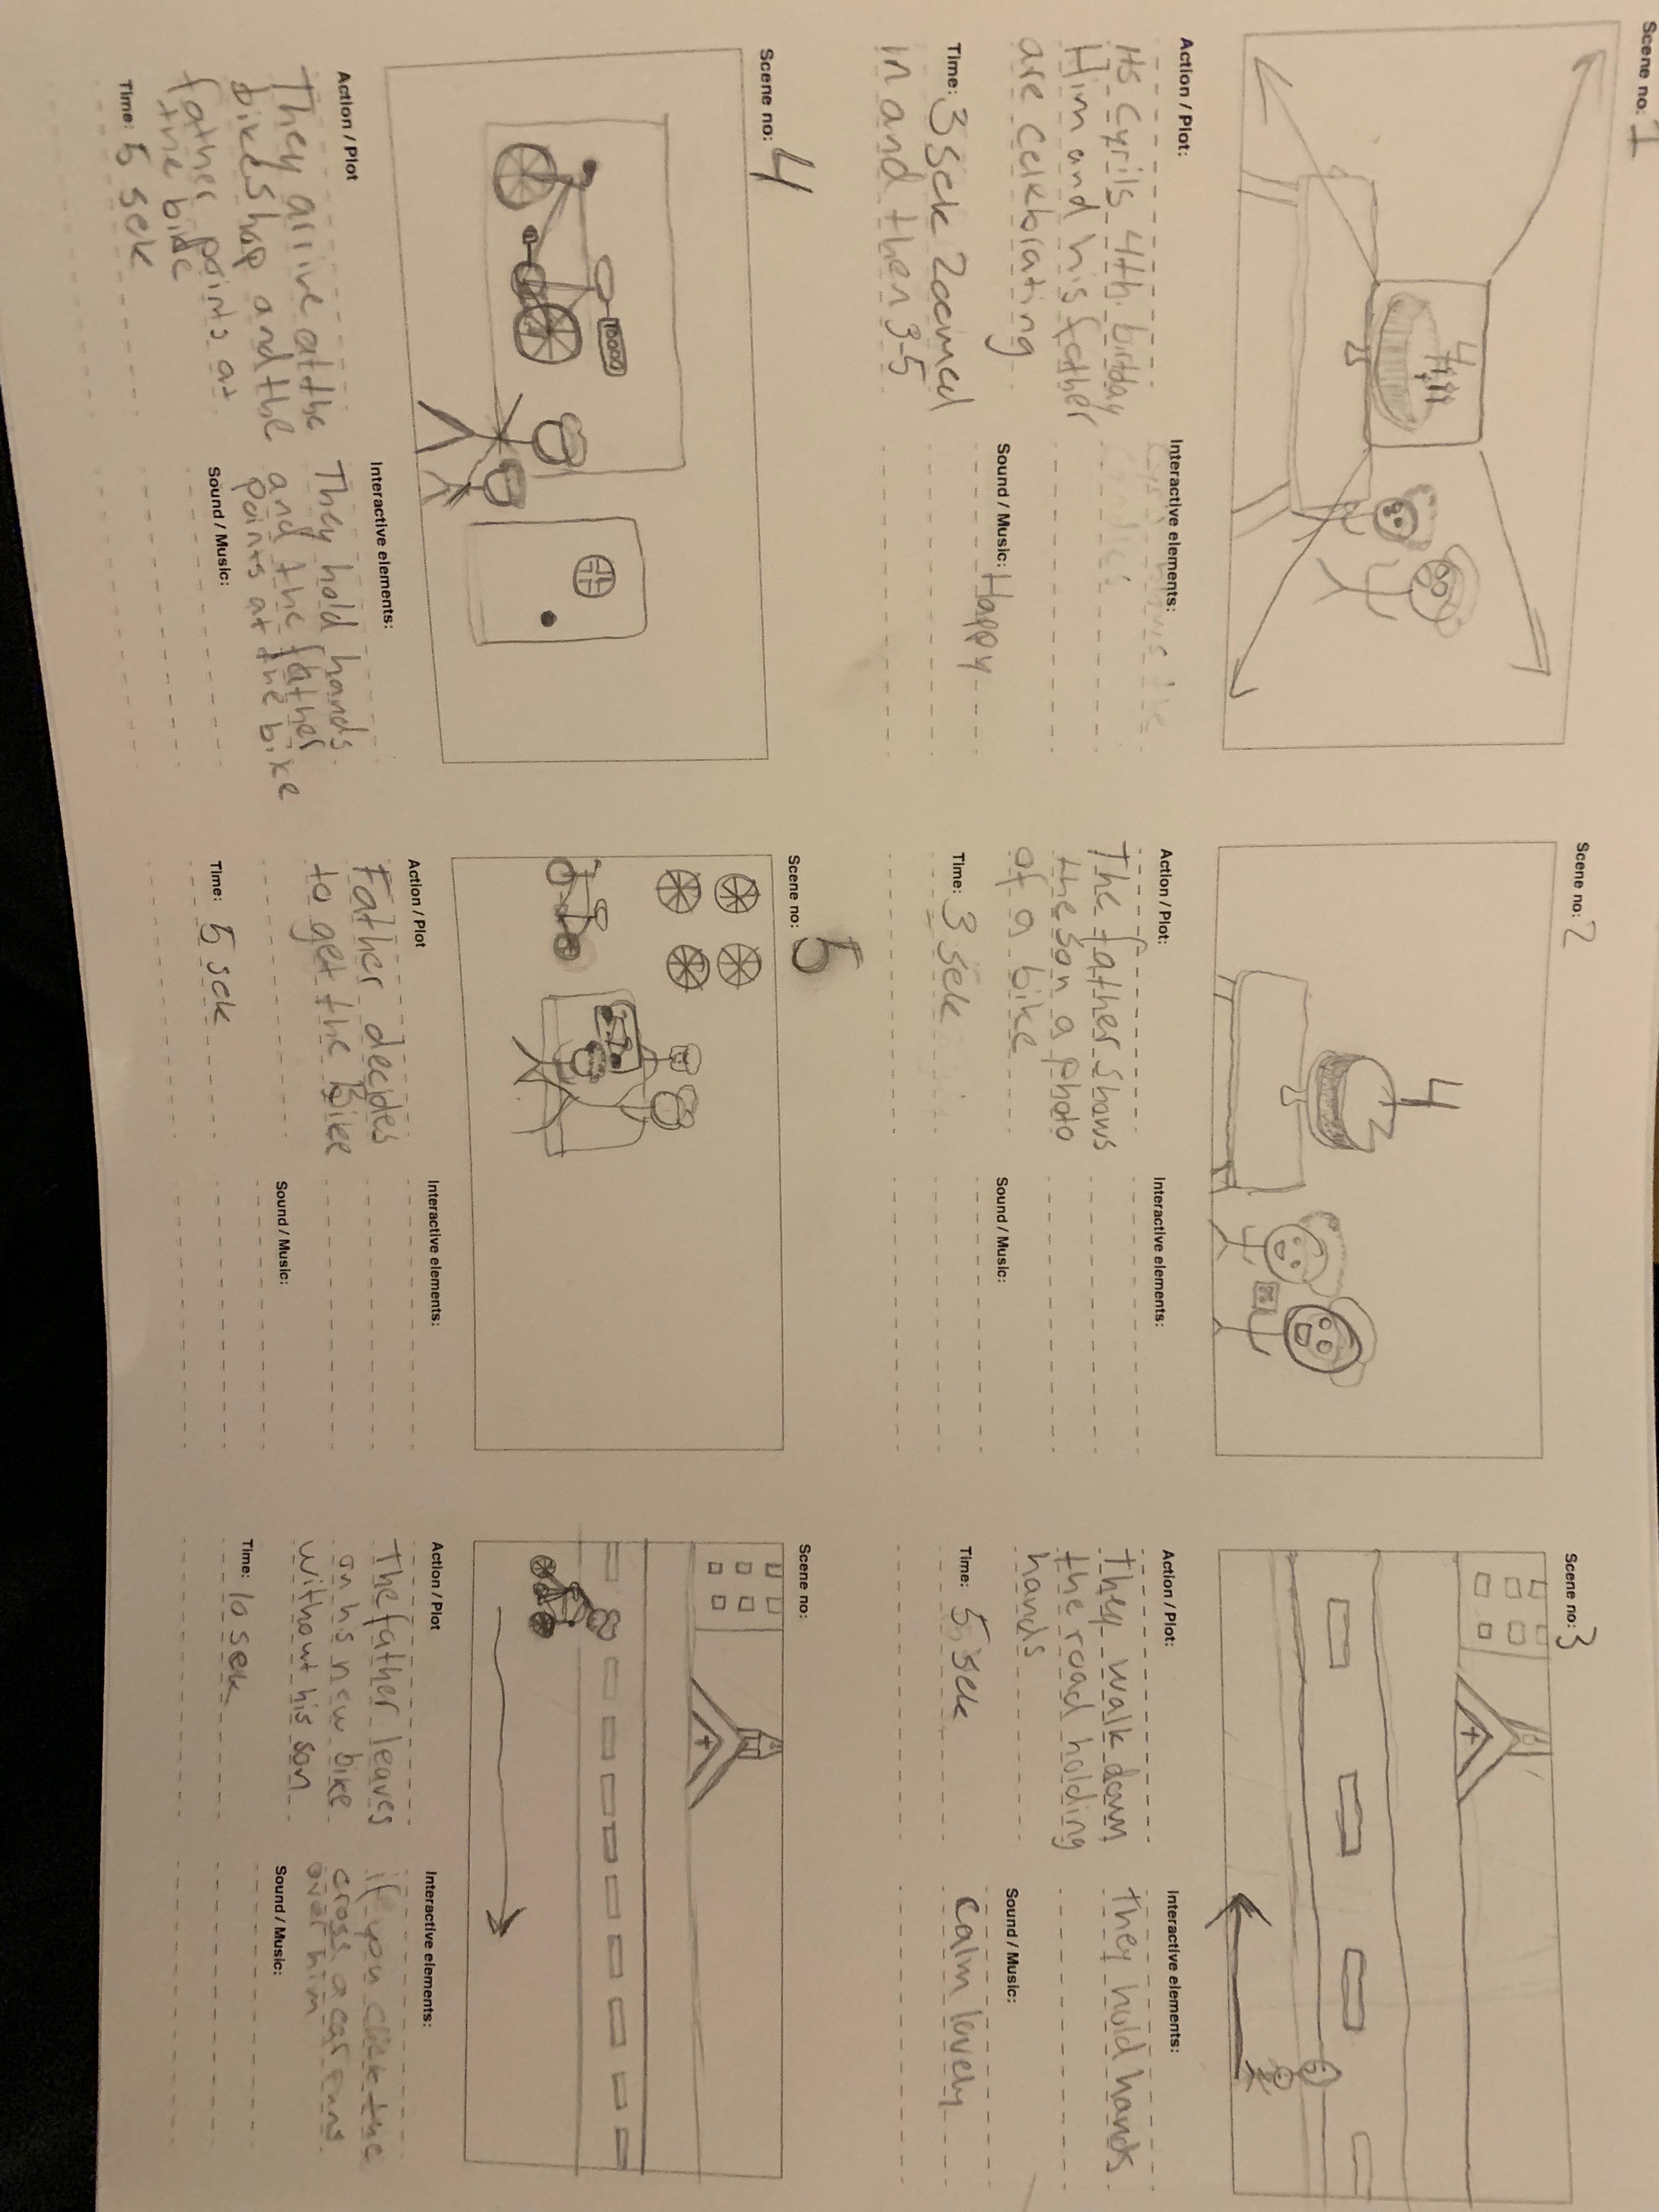 Scene no: 1
4
Action / Plot:
Its Cyrils 4th. birtday
Him and his father
are celebrating
Time: 3 sek zoomed
in and then 3-5
Interactive elements:
Sound / Music: Happy
Scene no: 2
4
Action / Plot:
The father shows
the son a photo
of a bike
Time: 3 sek
Interactive elements:
Sound / Music:
Scene no: 3
Action / Plot:
they walk down
the road holding
hands
Time: 5 sek
Interactive elements:
they hold hands
Sound / Music:
calm lovely
Scene no: 4
Action / Plot
They arrive at the
bikeshop and the
father points at
the bike
Time: 5 sek
Interactive elements:
They hold hands
and the father
points at the bike
Sound / Music:
Scene no: 5
Action / Plot
Father decides
to get the Bike
Time: 5 sek
Interactive elements:
Sound / Music:
Scene no:
Action / Plot
The father leaves
on his new bike
without his son
Time: 10 sek
Interactive elements:
if you click the
cross a car runs
over him
Sound / Music: